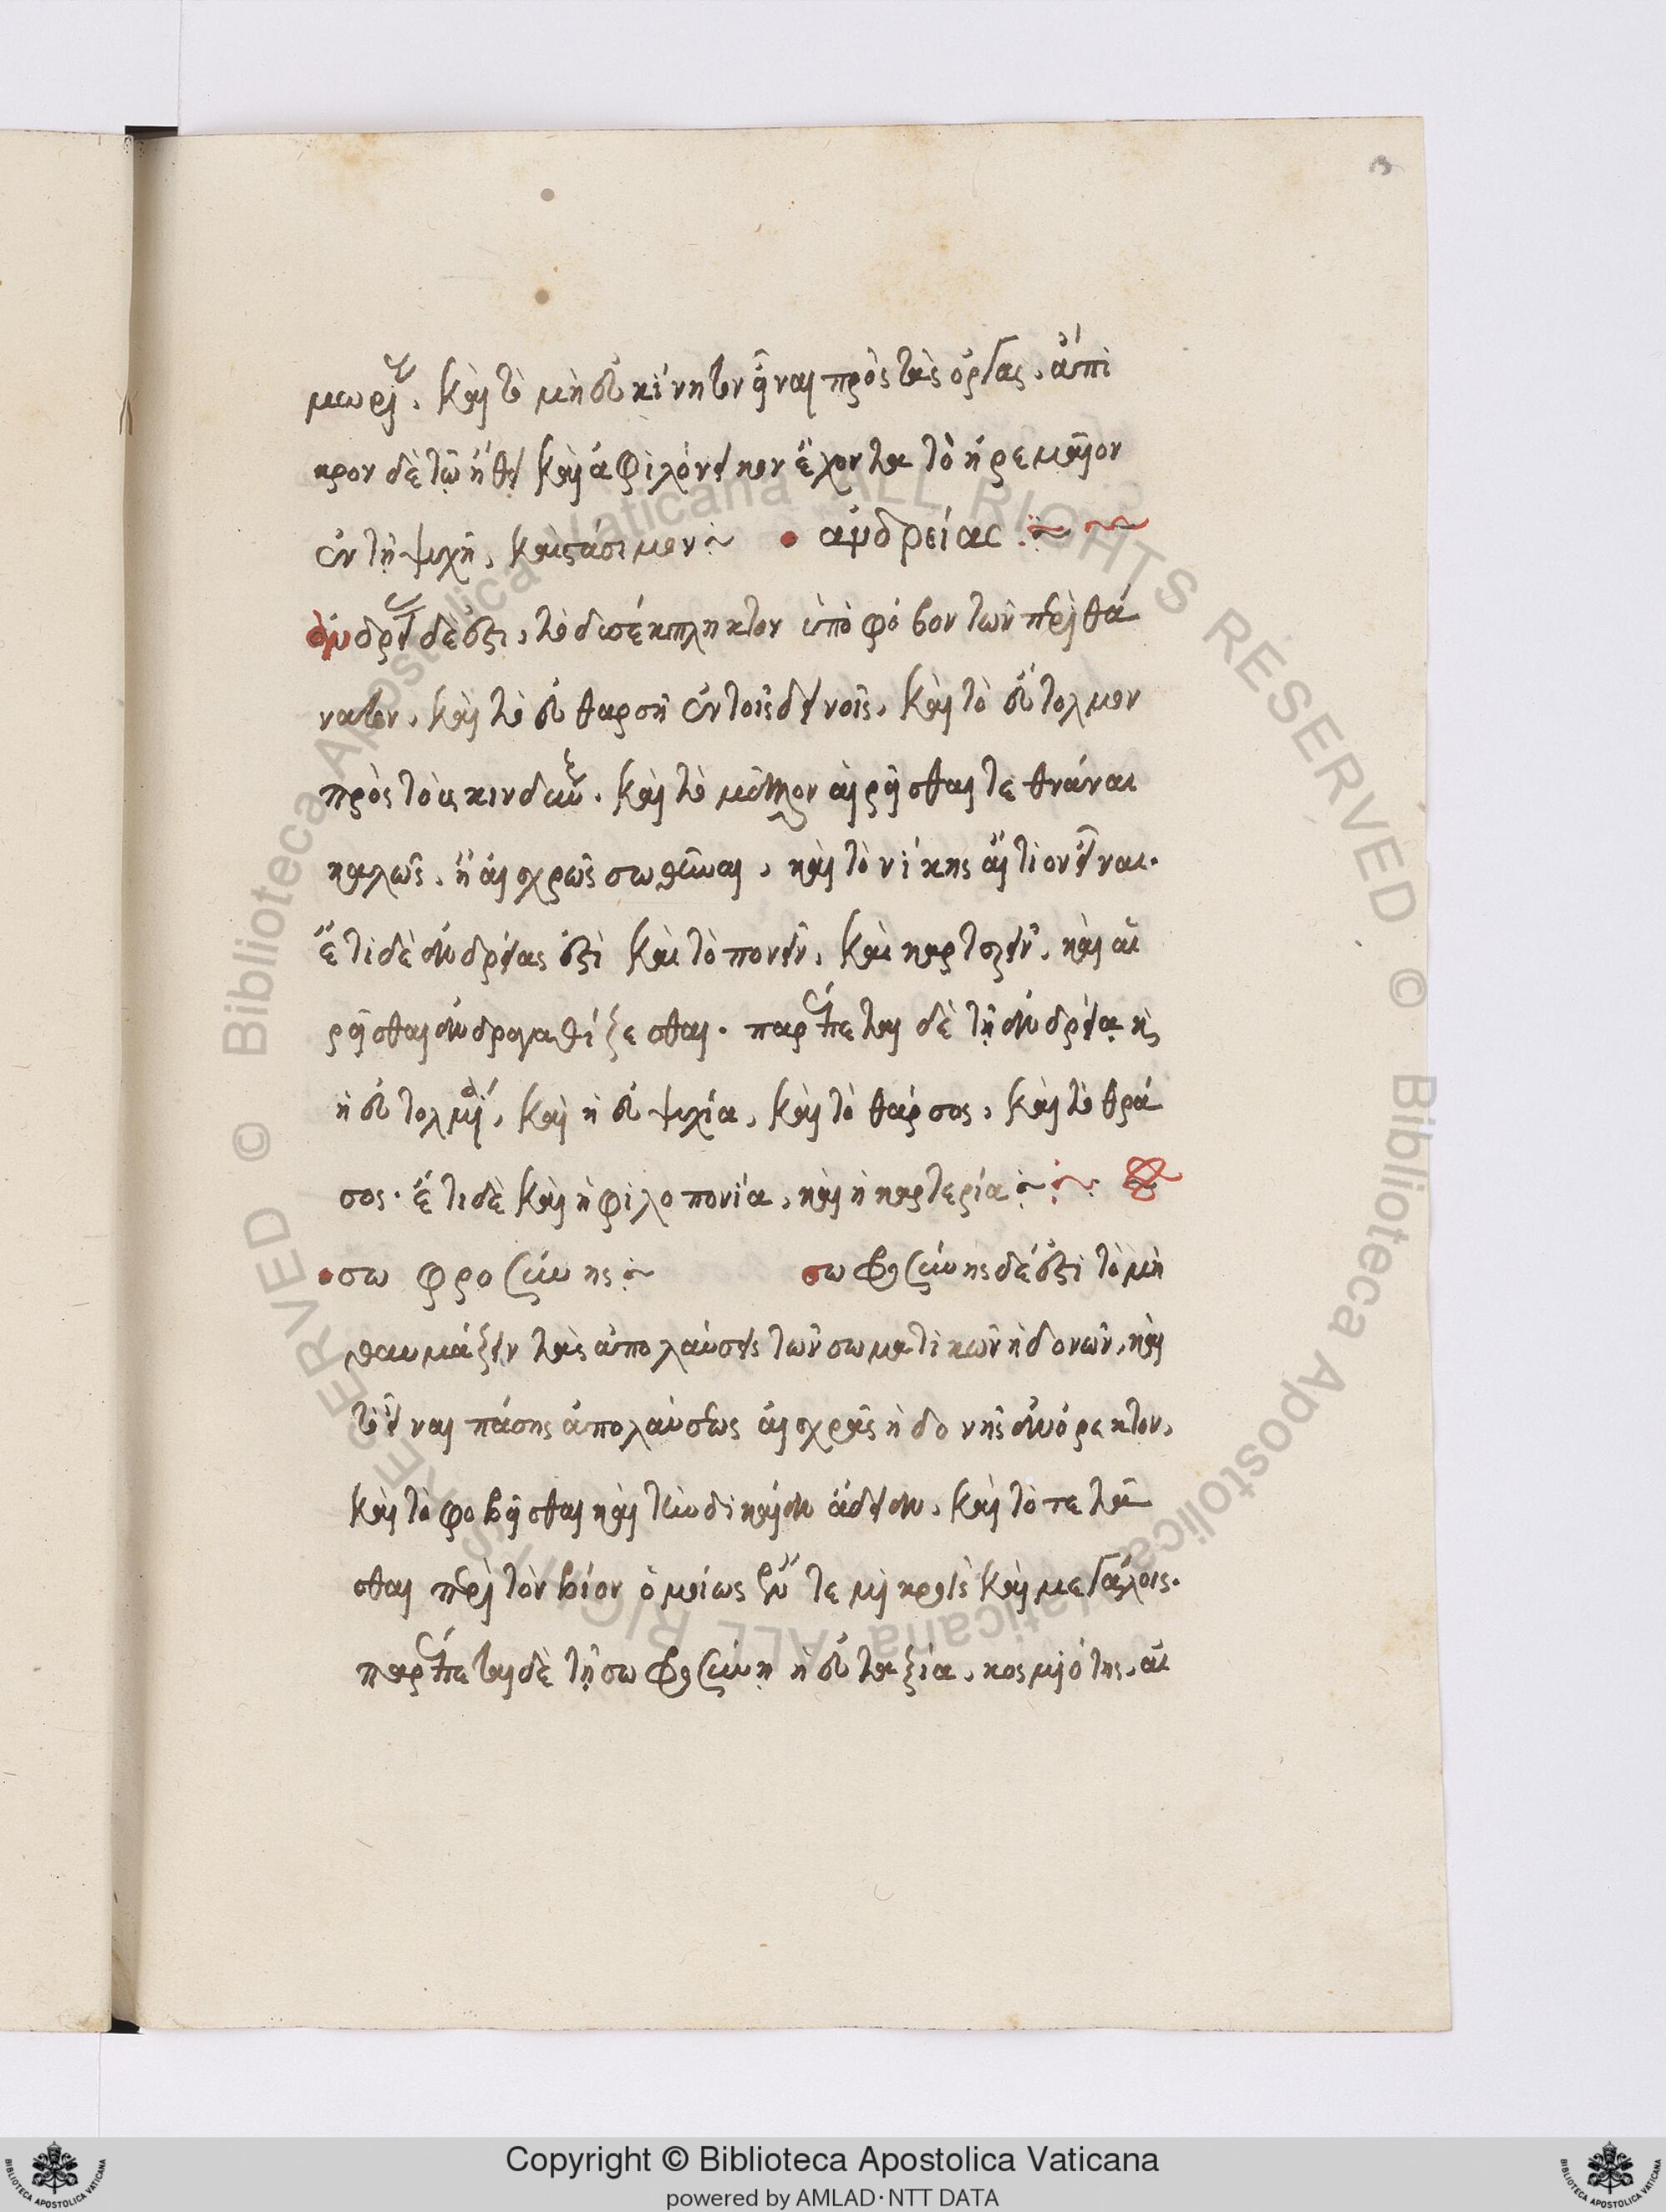 3
μωρίας. καὶ τὸ μὴ εὐκίνητον εἶναι πρὸς τὰς ὀργάς. ἄπι
κρον δὲ τῷ ἤθει καὶ ἀφιλόνεικον ἔχοντα τὸ ἠρεμαῖον
ἐν τῇ ψυχῇ, καὶ στάσιμον
ἀνδρείας
ἀνδρείας δὲ ἐστι, τὸ δυσέκπληκτον ὑπὸ φόβον τῶν περὶ θά
νατον, καὶ τὸ εὐθαρσῆ ἐν τοῖς δεινοῖς, καὶ τὸ εὔτολμον
πρὸς τοὺς κινδύνους. καὶ τὸ μᾶλλον αἱρεῖσθαι τεθνάναι
καλῶς, ἢ αἰσχρῶς σωθῆναι, καὶ τὸ νίκης αἴτιον εἶναι.
ἔτι δὲ ἀνδρείας ἐστὶ καὶ τὸ πονεῖν, καὶ καρτερεῖν, καὶ αἱ
ρεῖσθαι ἀνδραγαθίζεσθαι. παρέπεται δὲ τῇ ἀνδρείᾳ καὶ
ἡ εὐτολμία, καὶ ἡ εὐψυχία, καὶ τὸ θάρσος, καὶ τὸ θρά
σος. ἔτι δὲ καὶ ἡ φιλοπονία, καὶ ἡ καρτερία
σωφροσύνης
σωφροσύνης δέ ἐστι τὸ μὴ
θαυμάζειν τὰς ἀπολαύσεις τῶν σωματικῶν ἡδονῶν, καὶ
τὸ εἶναι πάσης ἀπολαύσεως αἰσχρᾶς ἡδονῆς ἀνόρεκτον,
καὶ τὸ φοβεῖσθαι καὶ τὴν δικαίαν ἄδειαν, καὶ τὸ τετά
σθαι περὶ τὸν βίον ὁμοίως ἔν τε μικροῖς καὶ μεγάλοις.
παρέπεται δὲ τῇ σωφροσύνῃ ἡ εὐταξία, κοσμιότης, αἰ
Copyright © Biblioteca Apostolica Vaticana
powered by AMLAD·NTT DATA